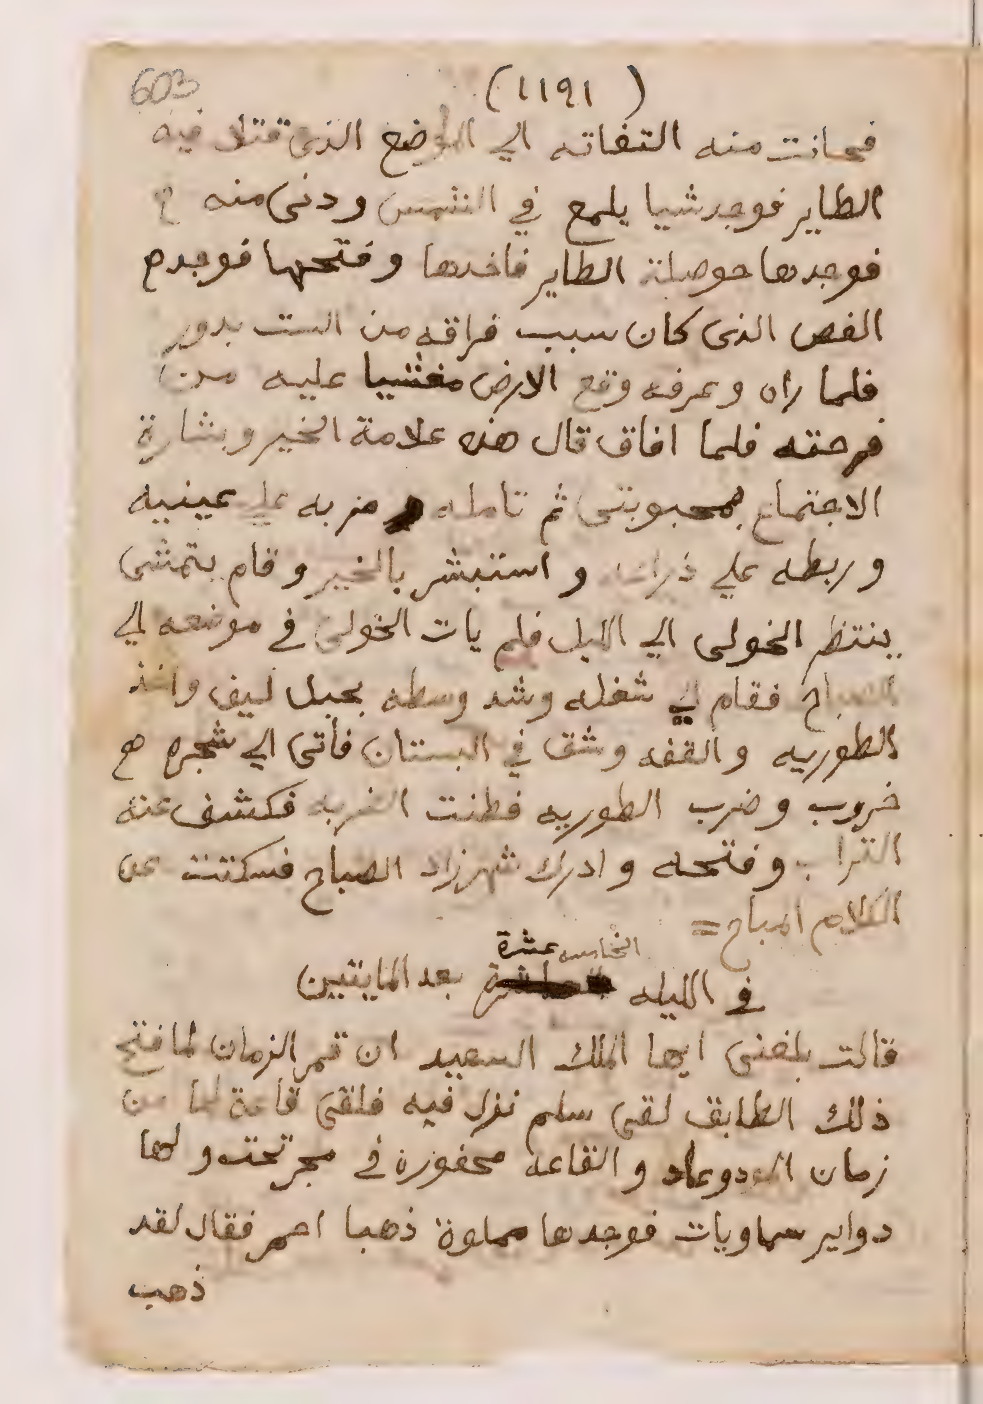 603
(١١٩١)
فحانت منه التفاته الي الموضع الذي قتل فيه
الطاير فوجد شيا يلمع في الشمس ودنى منه
فوجدها حوصلة الطاير فاخدها وفتحها فوجد
الفص الذى كان سبب فراقه من الست بدور
فلما راه وعرفه وقع الارض مغشيا عليه من
فرحته فلما افاق قال هذه علامة الخير وبشارة
الاجتماع بمحبوبتى ثم تامله ومر به علي عينيه
وربطه علي ذراعه واستبشر بالخير وقام يتمشى
ينتظر الخولى الي الليل فلم يات الخولى في موضعه الي
الصباح فقام الي شغله وشد وسطه بحبل ليف واخذ
الطوريه والقفه وشق في البستان فأتى الي شجره
خروب وضرب الطوريه فطنت الضربه فكشف عنه
التراب وفتحه وادرك شهرزاد الصباح فسكتت عن
الكلام المباح =
الخامسه عشرة
في الليله بعد المايتين
قالت بلغنى ايها الملك السعيد ان قمر الزمان لما فتح
ذلك الطابق لقى سلم نزل فيه فلقى قاعة لها من
زمان ثمود وعاد والقاعه محفورة في حجر تحت ولها
دواير سماويات فوجدها مملوة ذهبا احمر فقال لقد
ذهب